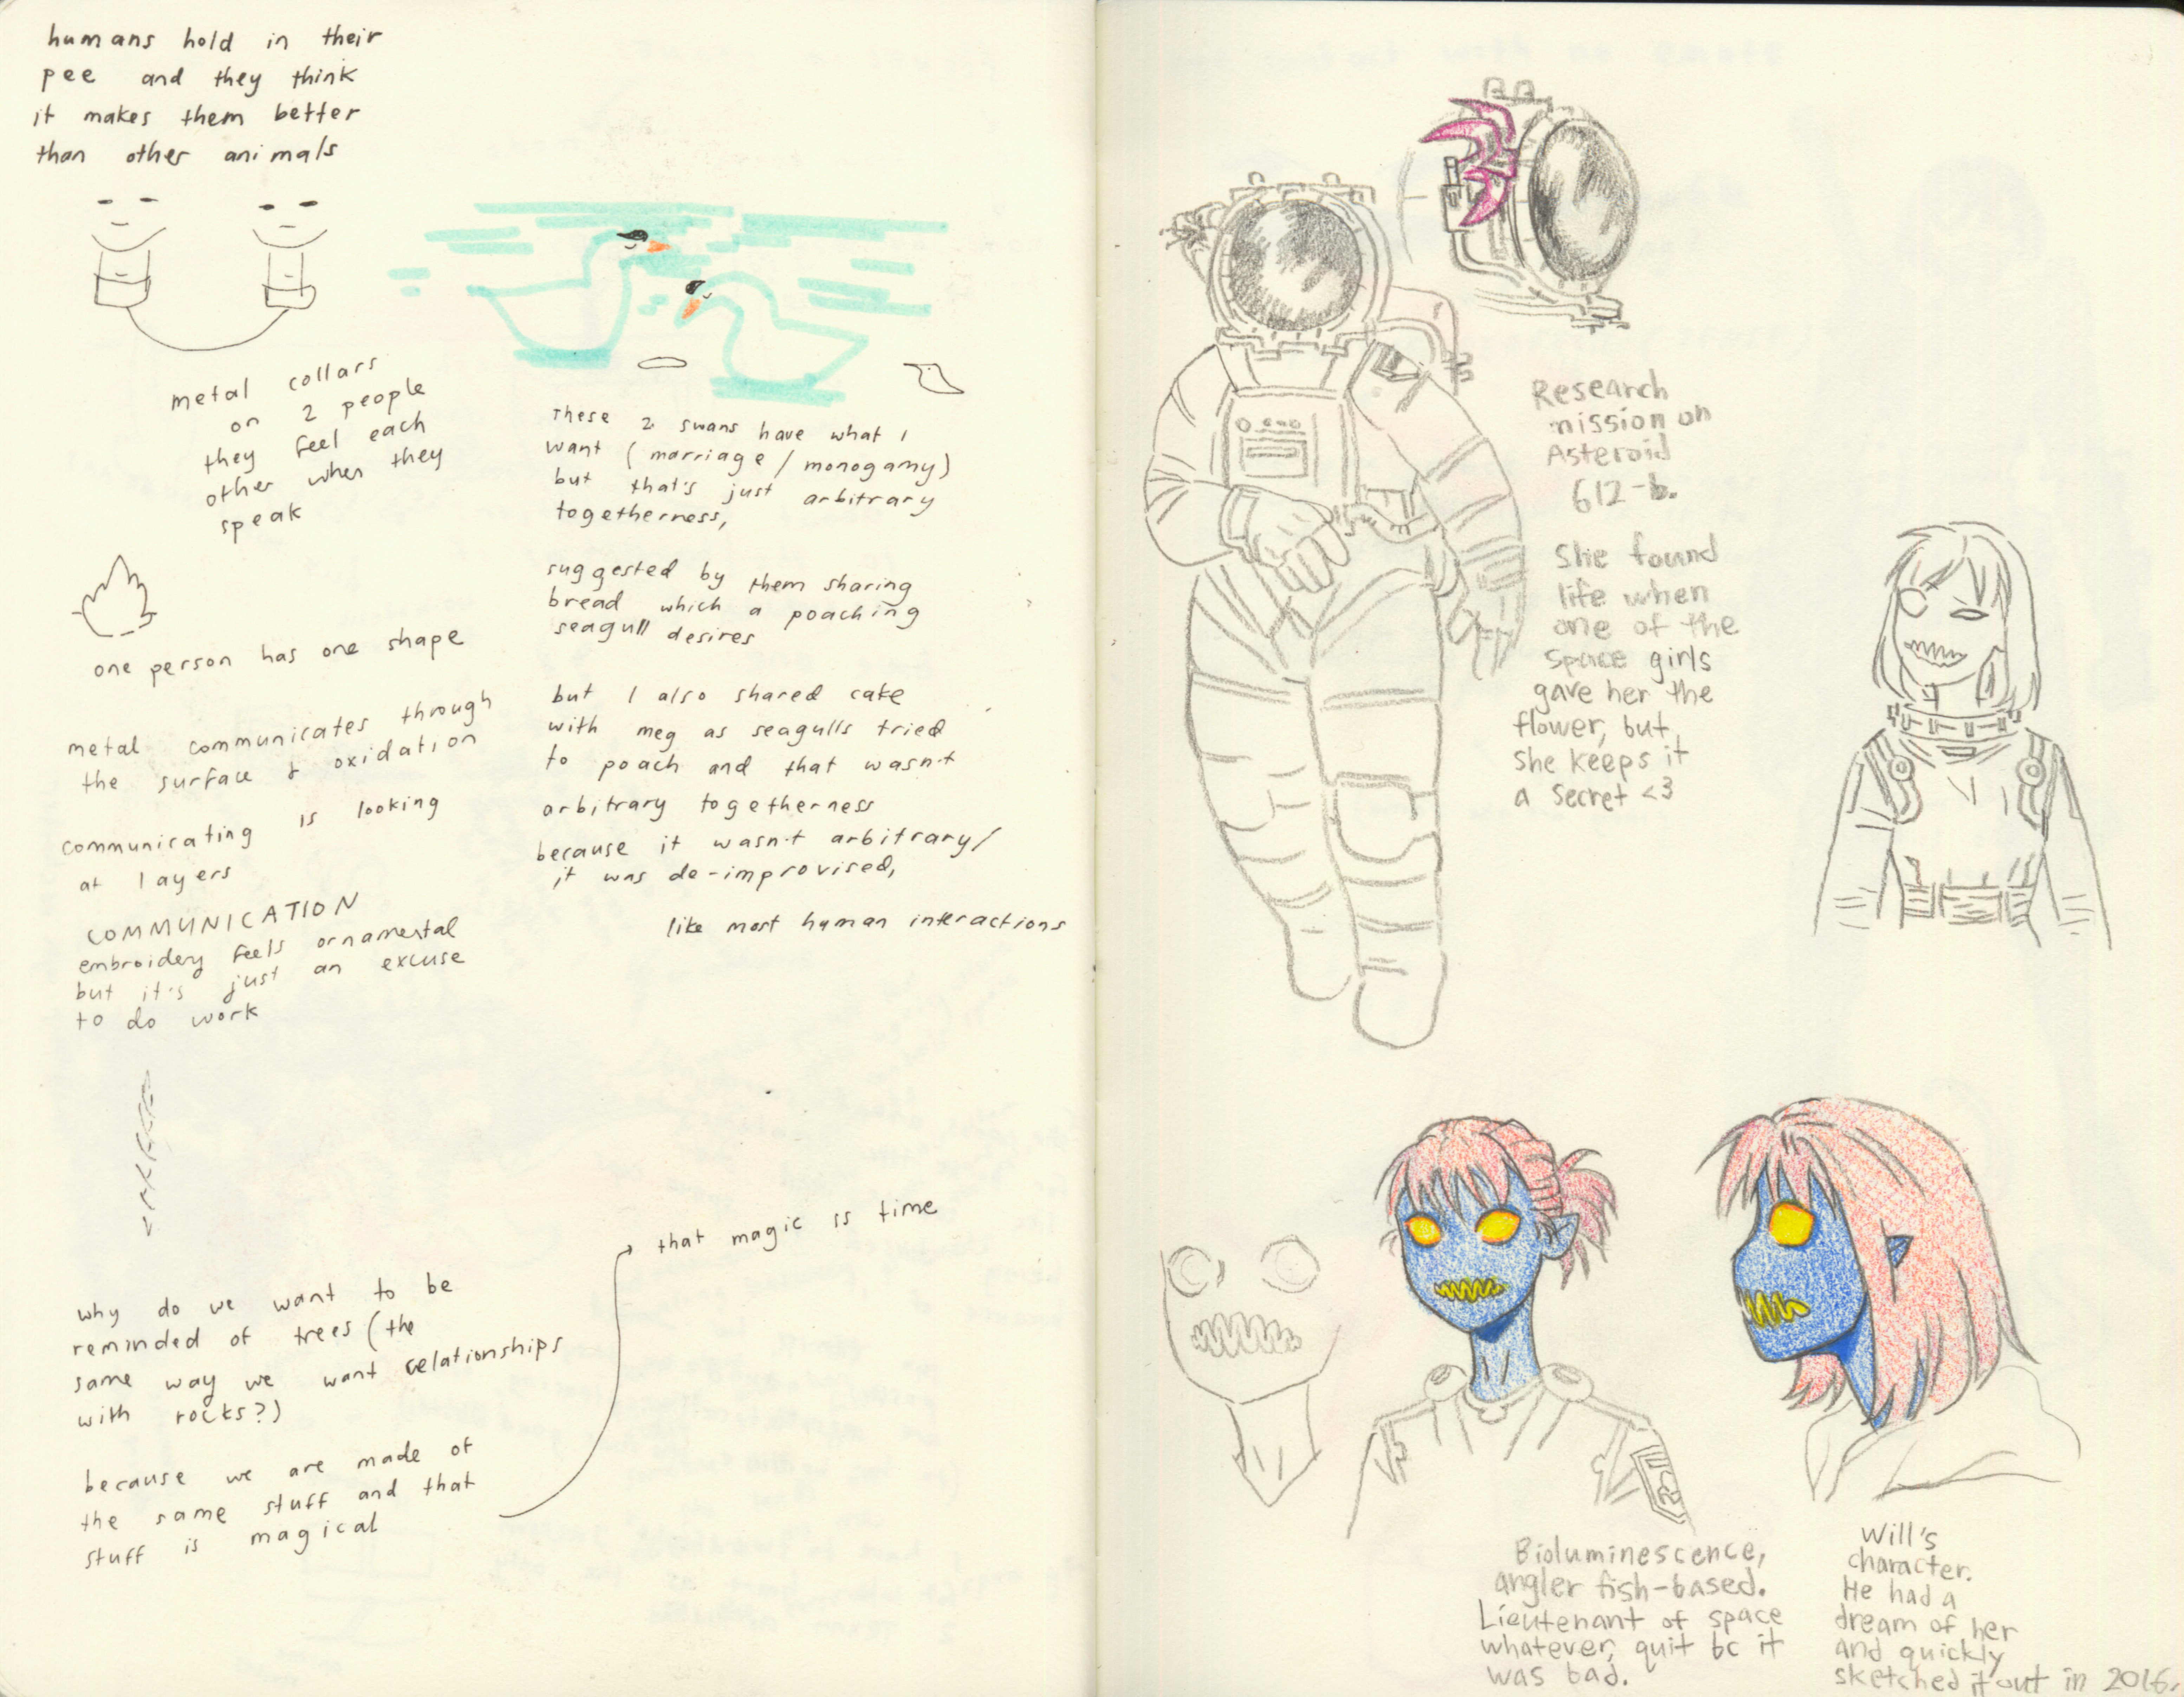 humans hold in their
pee and they think
it makes them better
than other animals
metal collars
on 2 people
they feel each
other when they
speak
one person has one shape
metal communicates through
the surface & oxidation
communicating is looking
at layers
COMMUNICATION
embroidery feels ornamental
but it's just an excuse
to do work
why do we want to be
reminded of trees (the
same way we want relationships
with rocks?)
because we are made of
the same stuff and that
stuff is magical
that magic is time
These 2 swans have what I
want (marriage / monogamy)
but that's just arbitrary
togetherness,
suggested by them sharing
bread which a poaching
seagull desires
but I also shared cake
with meg as seagulls tried
to poach and that wasn't
arbitrary togetherness
because it wasn't arbitrary/
it was de-improvised,
like most human interactions
Research
mission on
Asteroid
612-b.
She found
life when
one of the
space girls
gave her the
flower, but
she keeps it
a secret <3
Bioluminescence,
angler fish-based.
Lieutenant of space
whatever, quit bc it
was bad.
Will's
character.
He had a
dream of her
and quickly
sketched it out in 2016.